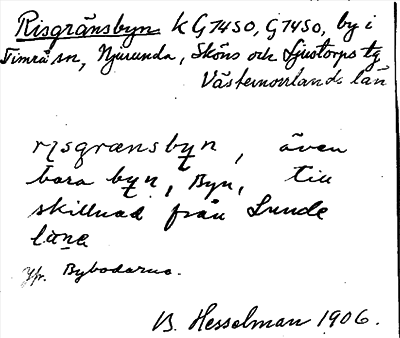 Risgränsbyn k G7450, G7450, by i
Timrå sn, Njurunda, Sköns och Ljustorps tg
Västernorrlands län
risgrænsbyn, även
bara byn, Byn, till
skillnad från Lunde
läna
Jfr. Bybodarna.
B. Hesselman 1906.